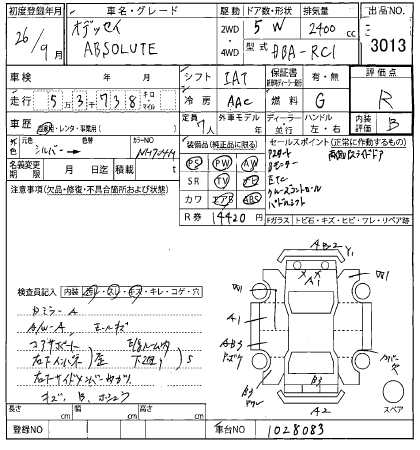 初度登録年月 車名・グレード 駆動 ドア数・形状 排気量 出品NO.
26/9月 オデッセイ ABSOLUTE 2WD 4WD 5 W 2400 cc 3013
型式 DBA-RC1
車検 年 月 シフト IAT 保証書 有・無 評価点
走行 53738 キロ マイル 冷房 AAC 燃料 G R
車歴 自家用・レンタ・事業用( ) 定員 7人 外車モデル 年 ディーラー・並行 ハンドル 左・右 内装評価 B
外色 元色 シルバー 色替 カラーNO NH704M
装備品(純正品に限る) セールスポイント(正常に作動するもの)
名義変更期限 月 日迄 積載 t
PS PW AW
SR TV ナビ
カワ エアB ABS
R券 14420円
Pスタート 両側パワースライドドア
Bモニター
ETC
クルーズコントロール
パドルシフト
注意事項(欠品・修復・不具合箇所および状態)
Fガラス トビ石・キズ・ヒビ・ワレ・リペア跡
検査員記入 内装 汚レ・スレ・キズ・キレ・コゲ・穴
A/W-A
コアサポート
右下サイドメンバー
キズ、B、
A B 2 Y1
A1
W1
W1
A1
AB3
B3
A2
スペア
長さ cm 幅 cm 高さ cm
登録NO 車台NO 1028083